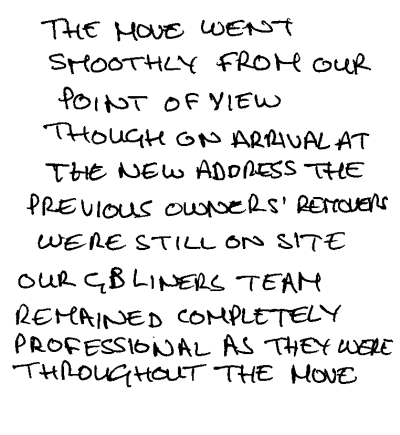 THE MOVE WENT
SMOOTHLY FROM OUR
POINT OF VIEW
THOUGH ON ARRIVAL AT
THE NEW ADDRESS THE
PREVIOUS OWNERS' REMOVERS
WERE STILL ON SITE
OUR GB LINERS TEAM
REMAINED COMPLETELY
PROFESSIONAL AS THEY WERE
THROUGHOUT THE MOVE